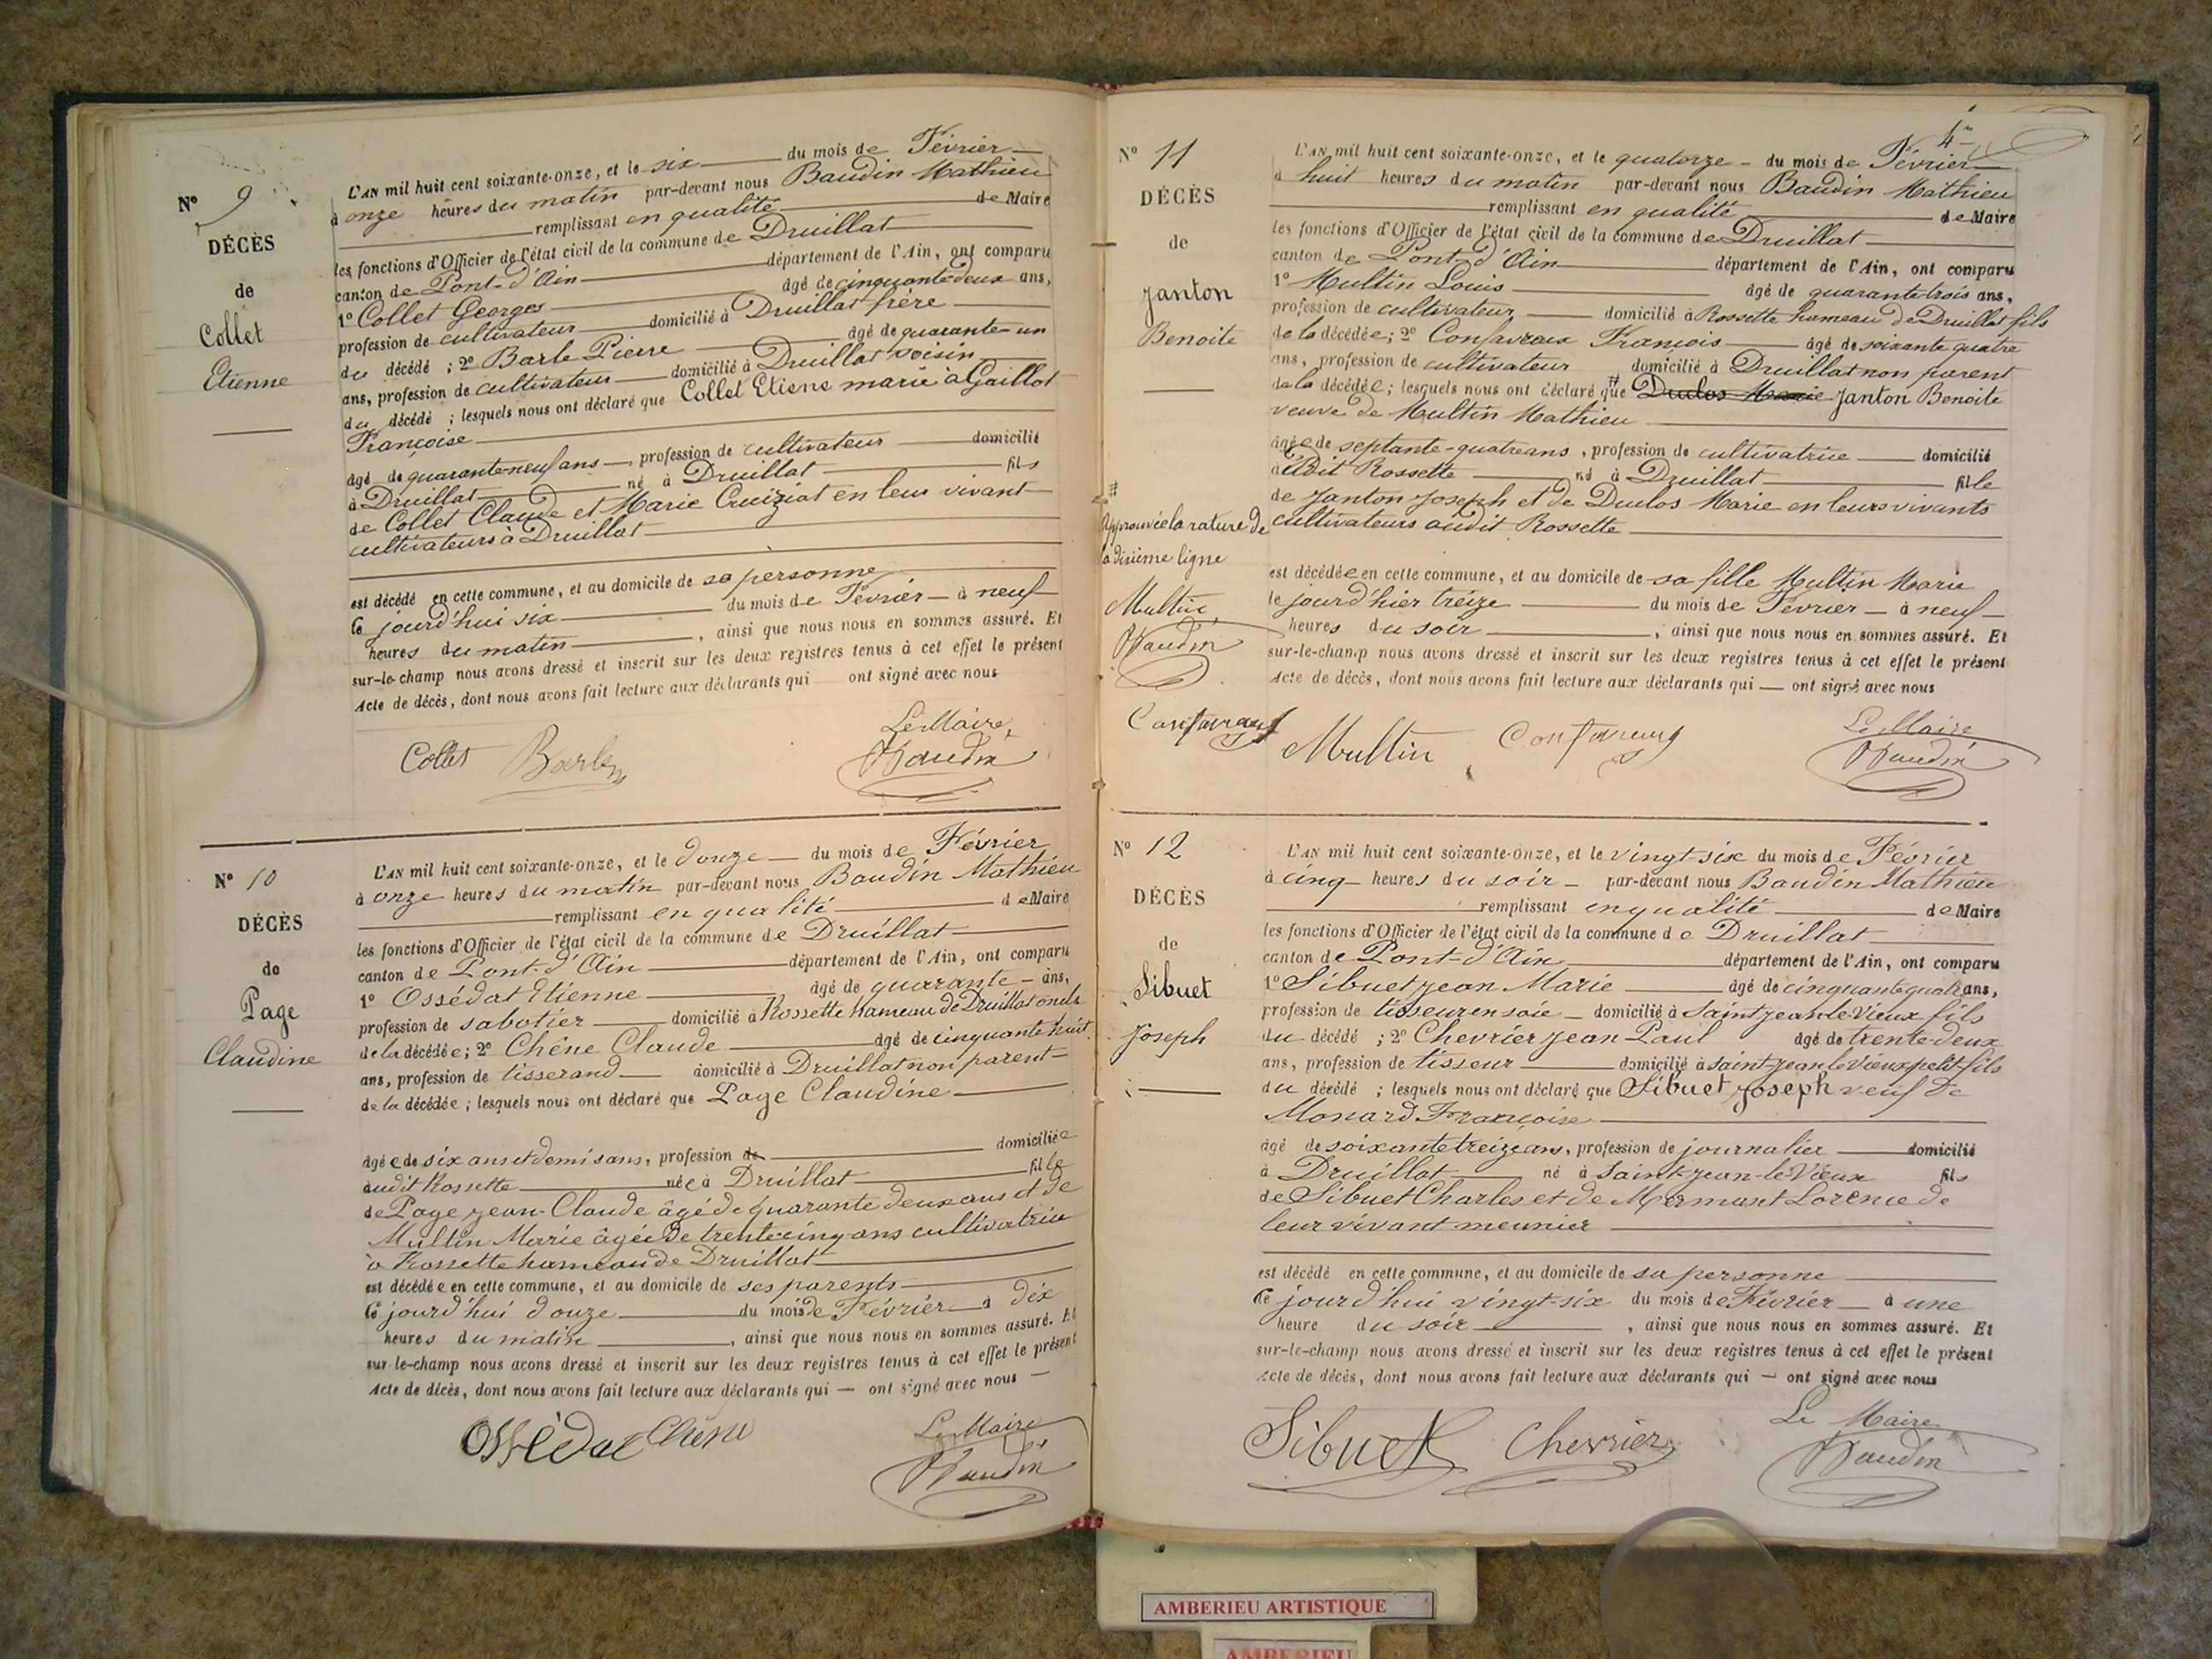 N° 9
DÉCÈS
de
Collet
Etienne
L'AN mil huit cent soixante-onze, et le six du mois de Février
à onze heures du matin par-devant nous Baudin Mathieu
remplissant en qualité de Maire
les fonctions d'Officier de l'état civil de la commune de Druillat
canton de Pont-d'Ain département de l'Ain, ont comparu
1° Collet Georges âgé de cinquante deux ans,
profession de cultivateur domicilié à Druillat frère
du décédé ; 2° Barle Pierre âgé de quarante-un
ans, profession de cultivateur domicilié à Druillat voisin
du décédé ; lesquels nous ont déclaré que Collet Etiene marié à Gaillot
Françoise
âgé de quarante-neuf ans, profession de cultivateur domicilié
à Druillat né à Druillat fils
de Collet Claude et Marie Cruiziat en leur vivant
cultivateurs à Druillat
est décédé en cette commune, et au domicile de sa personne
ce jourd'hui six du mois de Février à neuf
heures du matin, ainsi que nous nous en sommes assuré. Et
sur-le-champ nous avons dressé et inscrit sur les deux registres tenus à cet effet le présent
Acte de décès, dont nous avons fait lecture aux déclarants qui ont signé avec nous
Collet Barle Le Maire,
Baudin
N° 10
DÉCÈS
de
Page
Claudine
L'AN mil huit cent soixante-onze, et le douze du mois de Février
à onze heures du matin par-devant nous Baudin Mathieu
remplissant en qualité de Maire
les fonctions d'Officier de l'état civil de la commune de Druillat
canton de Pont-d'Ain département de l'Ain, ont comparu
1° Ossédat Etienne âgé de quarante ans,
profession de sabotier domicilié à Rossette hameau de Druillat oncle
de la décédée ; 2° Chêne Claude âgé de cinquante huit
ans, profession de tisserand domicilié à Druillat non parent
de la décédée ; lesquels nous ont déclaré que Page Claudine
âgée de six ans et demi sans, profession de domiciliée
audit Rossette née à Druillat fille
de Page Jean-Claude âgé de quarante deux ans et de
Multin Marie âgée de trente cinq ans cultivatrice
à Rossette hameau de Druillat
est décédée en cette commune, et au domicile de ses parents
ce jourd'hui douze du mois de Février à dix
heures du matin, ainsi que nous nous en sommes assuré. Et
sur-le-champ nous avons dressé et inscrit sur les deux registres tenus à cet effet le présent
Acte de décès, dont nous avons fait lecture aux déclarants qui — ont signé avec nous
Ossédat Chêne Le Maire
Baudin
N° 11
DÉCÈS
de
Janton
Benoite
L'AN mil huit cent soixante-onze, et le quatorze du mois de Février
à huit heures du matin par-devant nous Baudin Mathieu
remplissant en qualité de Maire
les fonctions d'Officier de l'état civil de la commune de Druillat
canton de Pont-d'Ain département de l'Ain, ont comparu
1° Multin Louis âgé de quarante trois ans,
profession de cultivateur domicilié à Rossette hameau de Druillat fils
de la décédée ; 2° Confavreux François âgé de soixante quatre
ans, profession de cultivateur domicilié à Druillat non parent
de la décédée ; lesquels nous ont déclaré que # Duclos Marie Janton Benoite
veuve de Multin Mathieu
âgée de septante-quatre ans, profession de cultivatrice domicilié
à Dit Rossette né à Druillat fille
de Janton Joseph et de Duclos Marie en leurs vivants
cultivateurs audit Rossette
est décédée en cette commune, et au domicile de sa fille Multin Marie
le jourd'hier treize du mois de Février à neuf
heures du soir, ainsi que nous nous en sommes assuré. Et
sur-le-champ nous avons dressé et inscrit sur les deux registres tenus à cet effet le présent
Acte de décès, dont nous avons fait lecture aux déclarants qui — ont signé avec nous
#
Approuvée la rature de
la dixième ligne
Multin
Baudin
Confavreux
Multin Confavreux Le Maire
Baudin
N° 12
DÉCÈS
de
Sibuet
Joseph
L'AN mil huit cent soixante-onze, et le vingt-six du mois de Février
à cinq heures du soir par-devant nous Baudin Mathieu
remplissant en qualité de Maire
les fonctions d'Officier de l'état civil de la commune de Druillat
canton de Pont-d'Ain département de l'Ain, ont comparu
1° Sibuet Jean Marie âgé de cinquante quatre ans,
profession de tisseur en soie domicilié à Saint Jean le Vieux fils
du décédé ; 2° Chevrier Jean Paul âgé de trente-deux
ans, profession de tisseur domicilié à Saint-Jean le Vieux petit fils
du décédé ; lesquels nous ont déclaré que Sibuet Joseph veuf de
Monard Françoise
âgé de soixante treize ans, profession de journalier domicilié
à Druillat né à Saint-Jean-le-Vieux fils
de Sibuet Charles et de Mermant Lorence de
leur vivant meunier
est décédé en cette commune, et au domicile de sa personne
ce jourd'hui vingt-six du mois de Février à une
heure du soir, ainsi que nous nous en sommes assuré. Et
sur-le-champ nous avons dressé et inscrit sur les deux registres tenus à cet effet le présent
Acte de décès, dont nous avons fait lecture aux déclarants qui — ont signé avec nous
Sibuet Chevrier Le Maire
Baudin
AMBERIEU ARTISTIQUE
AMBERIEU